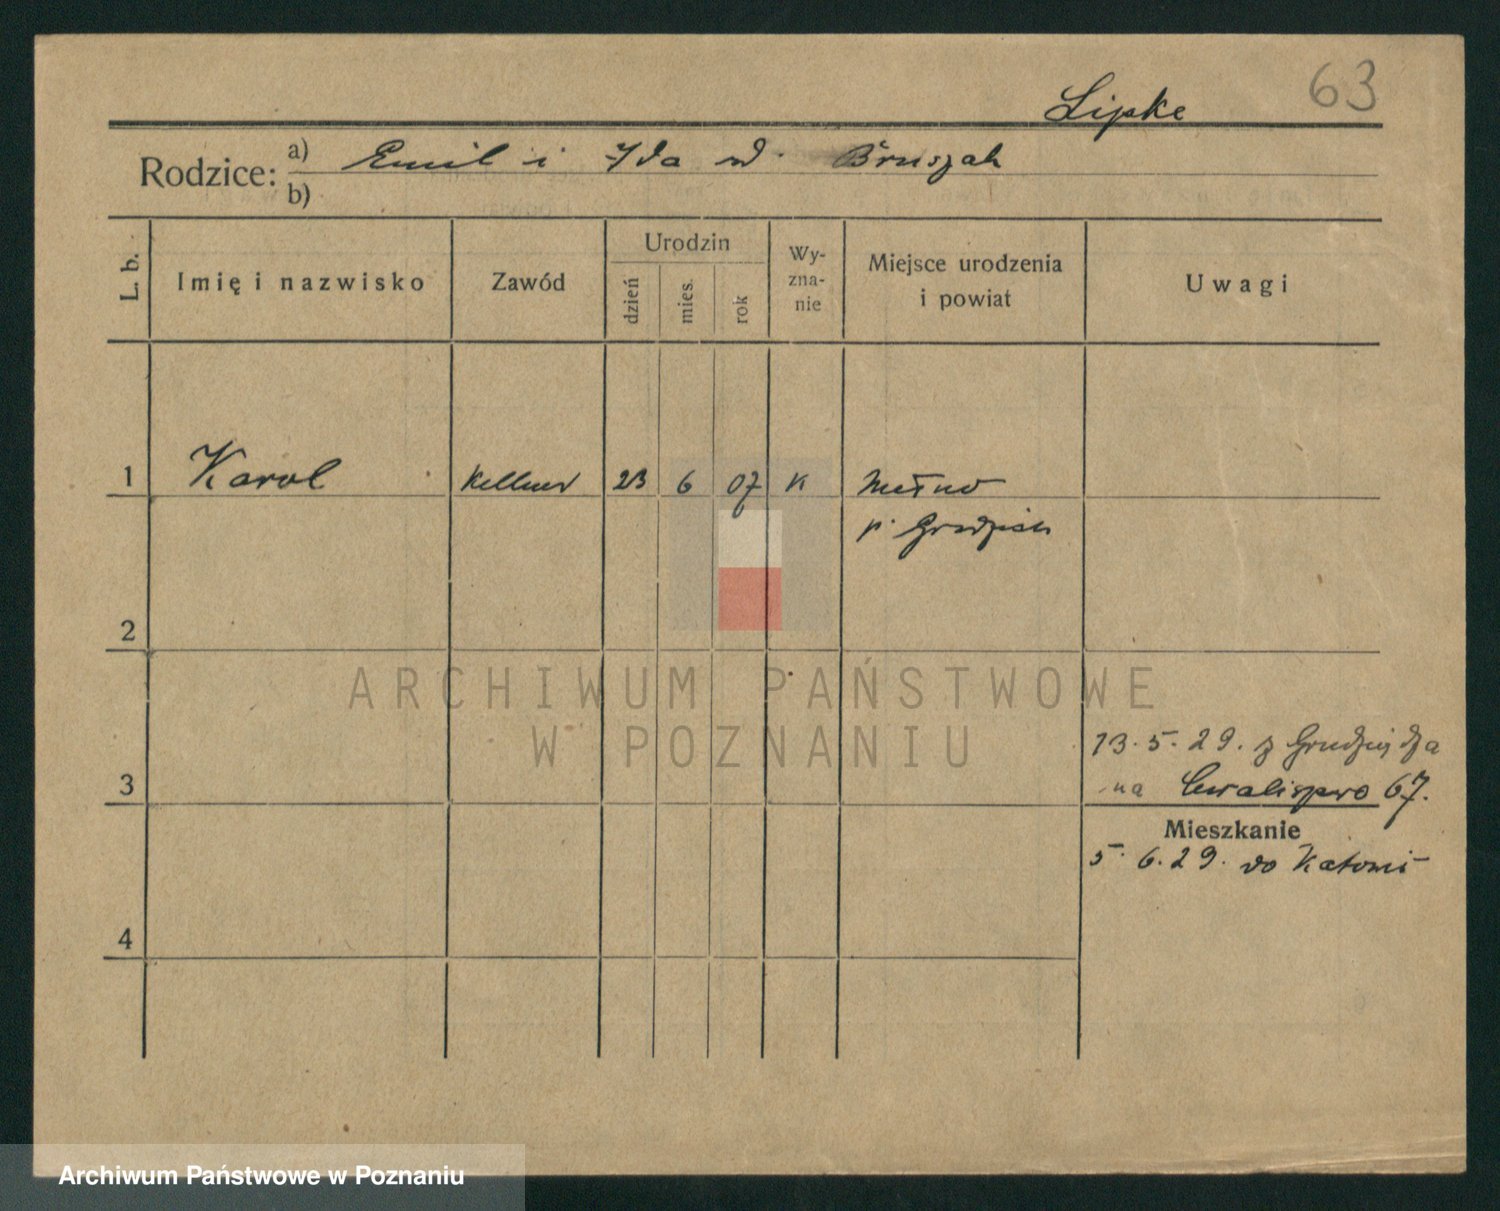 63
Lipke
Rodzice: a) Emil i Ida
b)
L. b.
Imię i nazwisko
Zawód
Urodzin
dzień
mies.
rok
Wy-
zna-
nie
Miejsce urodzenia
i powiat
Uwagi
1 Karol Kellner 23 6 07 K Mełno
p. Grudziądz
2
3
13.5.29. z Grudziądza
na 67.
Mieszkanie
5.6.29. do Katowic
4
ARCHIWUM PAŃSTWOWE
W POZNANIU
Archiwum Państwowe w Poznaniu